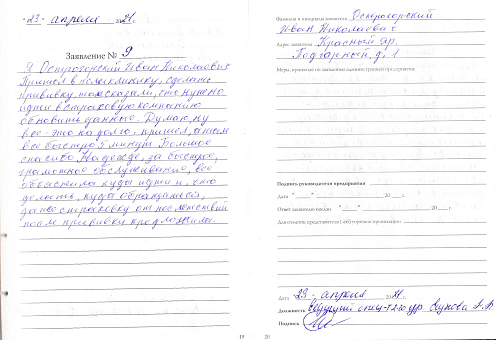 "23" апреля 2021.
Заявление № 9
Я Острогорский Иван Николаевич
Пришел в поликлинику, сделать
прививку, там сказали, что нужно
идти в страховую компанию
обновить данные. Думаю, ну
все - это надолго. пришел, а там
все быстро 5 минут. Большое
спасибо Надежде, за быстрое,
грамотное обслуживание, все
объяснила куда идти и, что
делать, куда обращаться,
даже страховку от последствий
после прививки предложила.
19
Фамилия и инициалы заявителя Острогорский
Иван Николаевич
Адрес заявителя Красный Яр.
Подгорный, д. 1
Меры, принятые по заявлению администрацией предприятия:
Подпись руководителя предприятия
Дата "___" ______ 20__ г.
Ответ заявителю послан "___" ______ 20__ г.
Для отметок представителя (-ей) сторонних организаций:
Дата 23. апреля 2021.
Должность Ведущий спец-т
Подпись
20